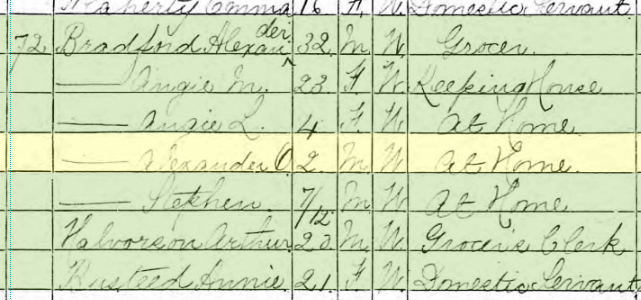 Flaherty Emma 16 F. W. Domestic Servant
72 Bradford Alexander 32 M. W. Grocer.
—— Angie M. 23 F. W. Keeping House
—— Angie L. 4 F. W. At Home
—— Alexander O 2 M. W. At Home.
—— Stephen. 7/12 M. W. At Home
Halvorson Arthur 20 M. W. Grocer's Clerk
Husteed Annie 21. F. W. Domestic Servant